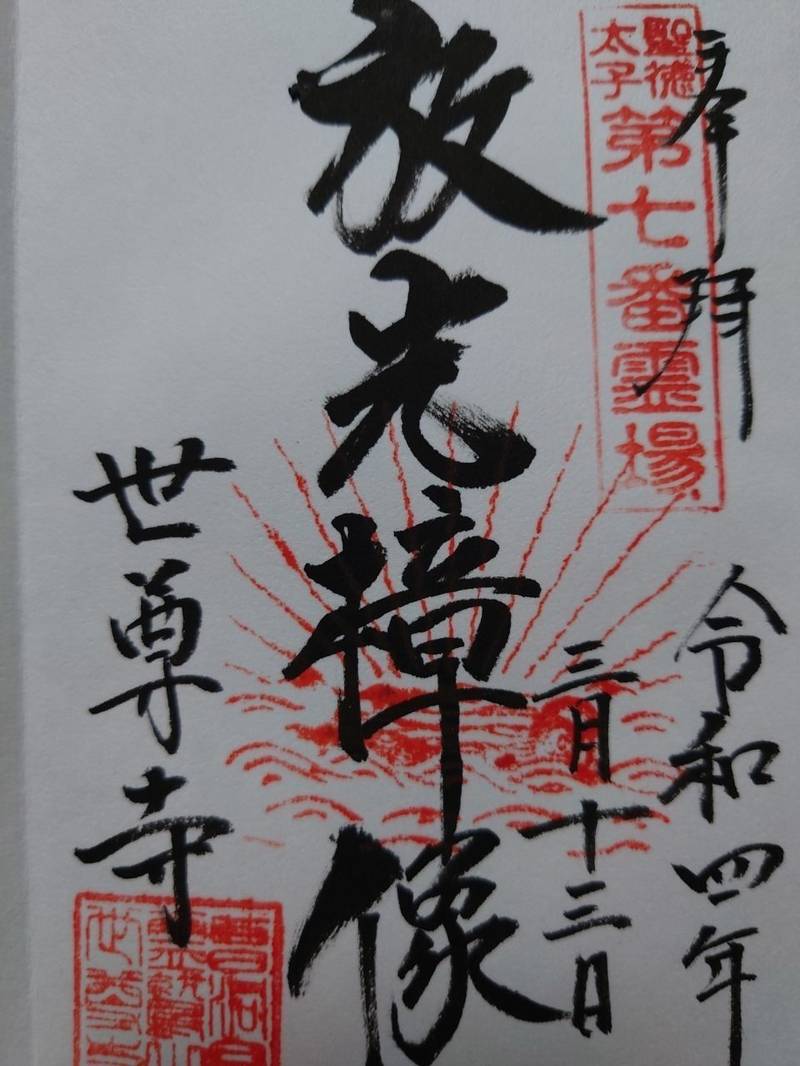 奉拝
聖徳
太子
第七番霊場
令和四年
三月十三日
放光樟像
世尊寺